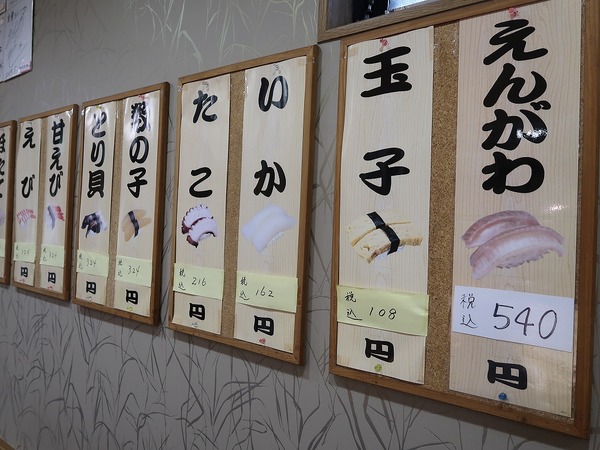 えんがわ
税込 540
円
玉子
税込 108
円
いか
税込 162
円
たこ
税込 216
円
数の子
税込 324
円
とり貝
税込 324
円
甘えび
円
えび
円